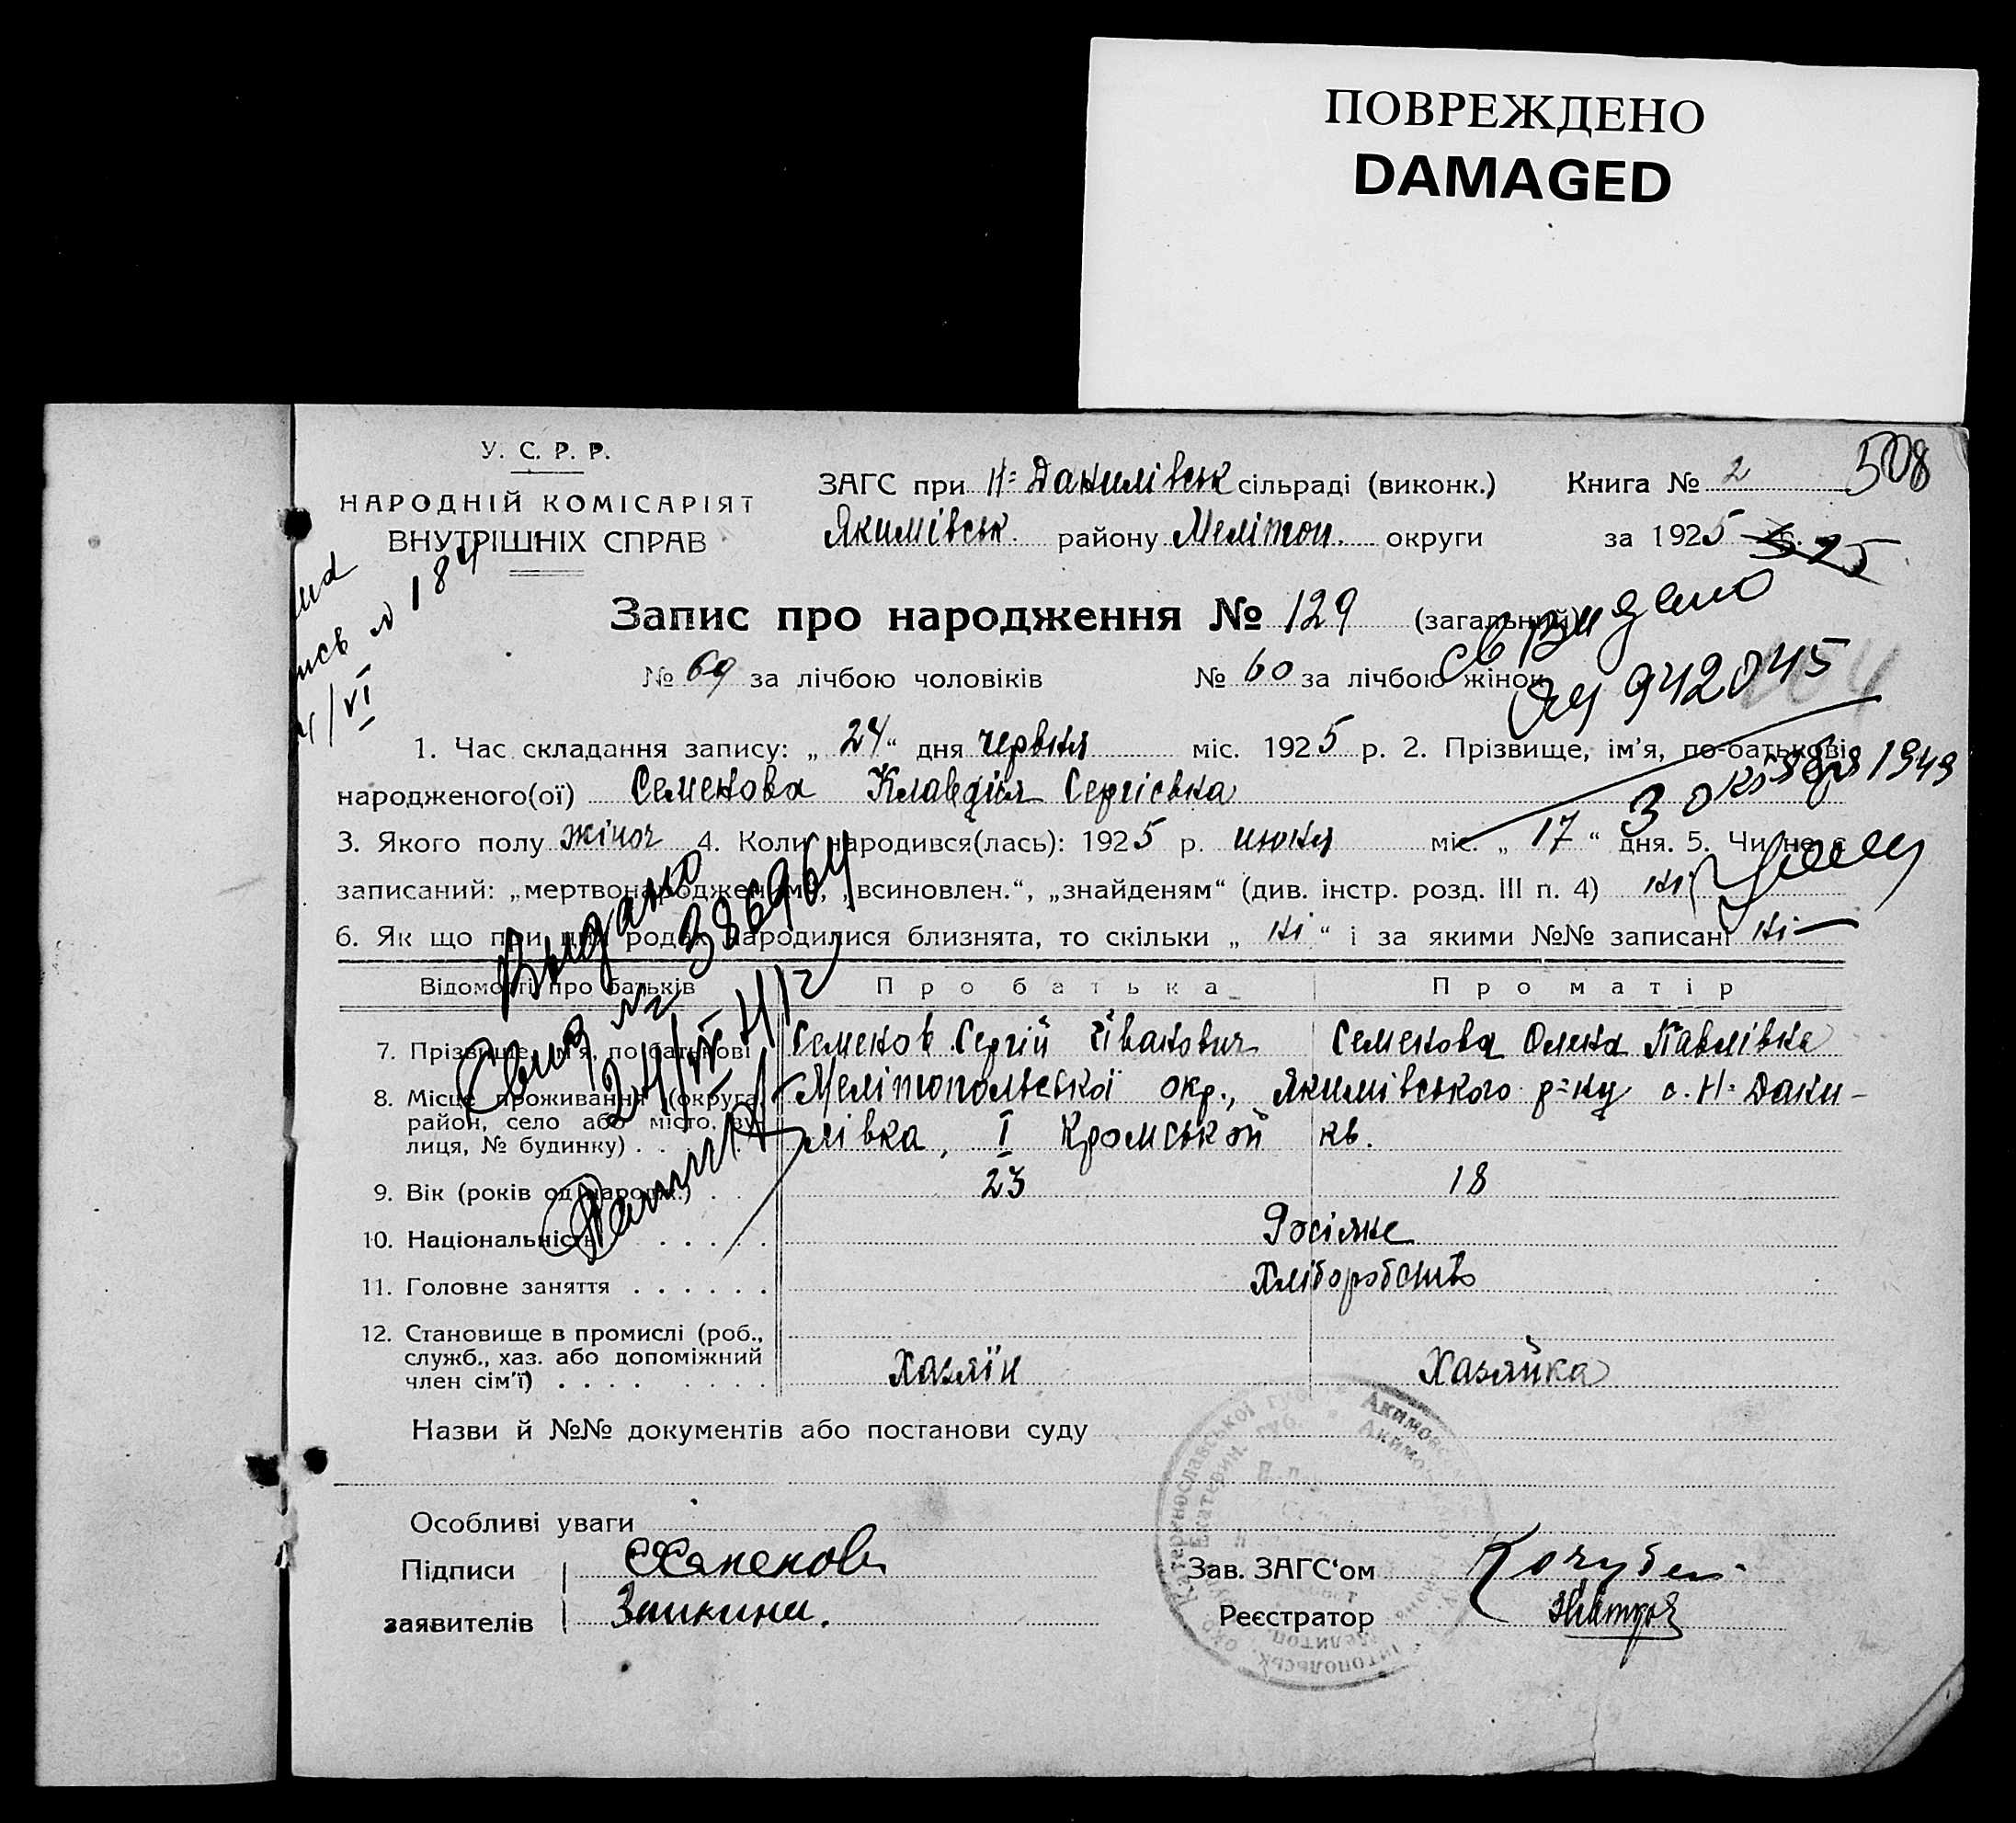 ПОВРЕЖДЕНО
DAMAGED
У. С. Р. Р.
НАРОДНІЙ КОМІСАРІЯТ
ВНУТРІШНІХ СПРАВ
ЗАГС при Н-Данилівськ сільраді (виконк.) Книга № 2 508
Якимівськ. району Мелітоп. округи за 1925
Запис про народження № 129 (загальний)
№ 69 за лічбою чоловіків № 60 за лічбою жінок
св видано
942045
1. Час складання запису: „ 24 “ дня червня міс. 1925 р. 2. Прізвище, ім'я, по-батькові
3 октября 1949
народженого(ої) Семенова Клавдія Сергієвна
3. Якого полу жіноч 4. Коли народився(лась): 1925 р. июня міс. „ 17 “ дня. 5. Чи не є
записаний: „мертвонародженим“, „всиновлен.“, „знайденям“ (див. інстр. розд. III п. 4) ні
6. Як що при цих родах народилися близнята, то скільки „ ні “ і за якими №№ записані ні
Выдано
Свид № 386964
Відомості про батьків Про батька Про матір
7. Прізвище, ім'я, по-батькові Семенов Сергій Іванович Семенова Олена Павлівна
8. Місце проживання (округа, Мелітопольської окр., Якимівського р-ну с. Н-Дани-
район, село або місто, ву-
лиця, № будинку) . . лівка, I Кромськой кв.
9. Вік (років од народж.) . . 23 18
10. Національність . . . . . Росіяне
11. Головне заняття . . . . . . Хліборобство
12. Становище в промислі (роб.,
служб., хаз. або допоміжний
член сім'ї) . . . . . . . . . Хазяїн Хазяйка
Назви й №№ документів або постанови суду
Особливі уваги
Підписи Семенов Зав. ЗАГС'ом Кочубей
заявителів Заикина. Реєстратор